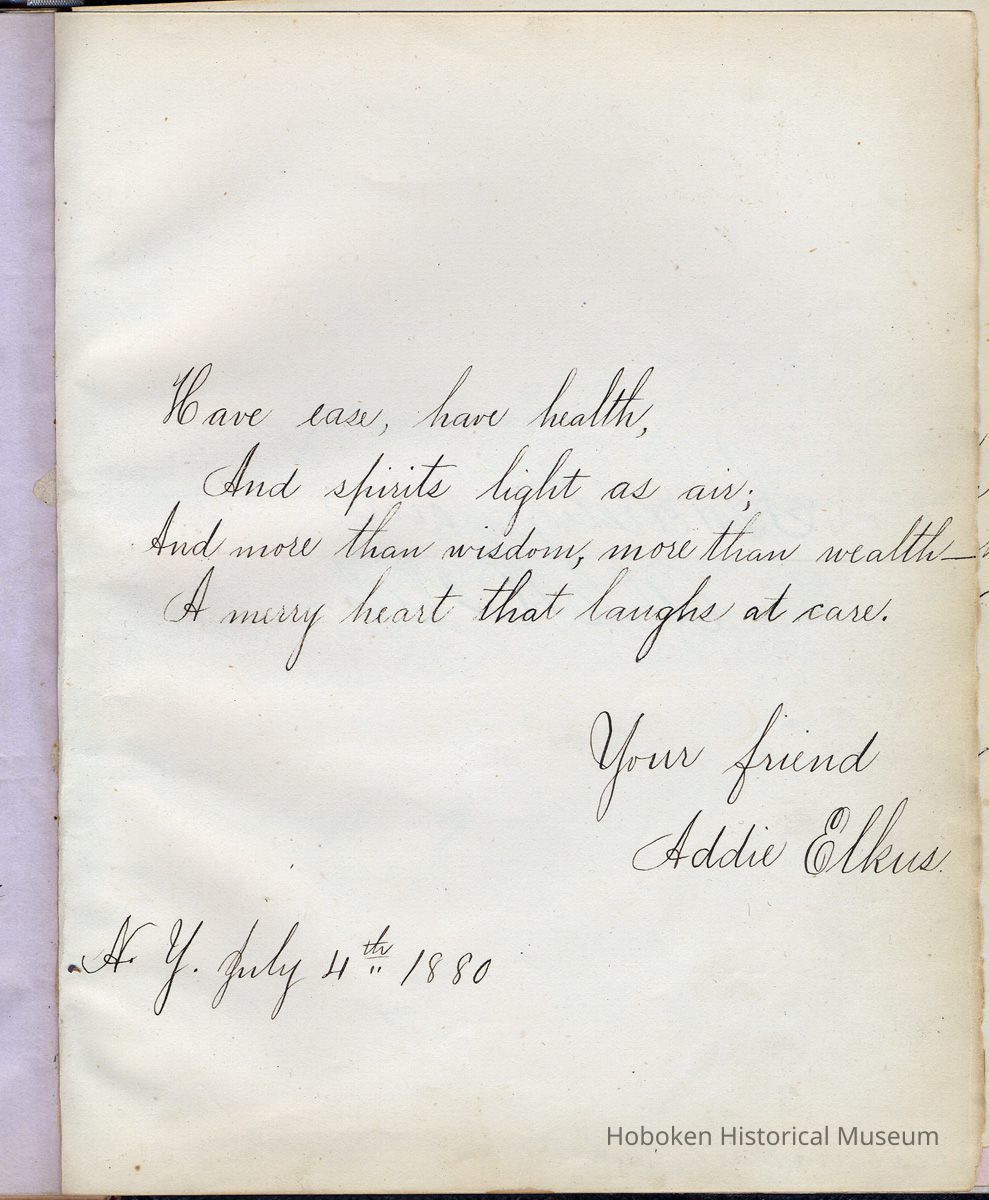 Have ease, have health,
And spirits light as air;
And more than wisdom, more than wealth—
A merry heart that laughs at care.
Your friend
Addie Elkus.
N. Y. July 4th 1880
Hoboken Historical Museum